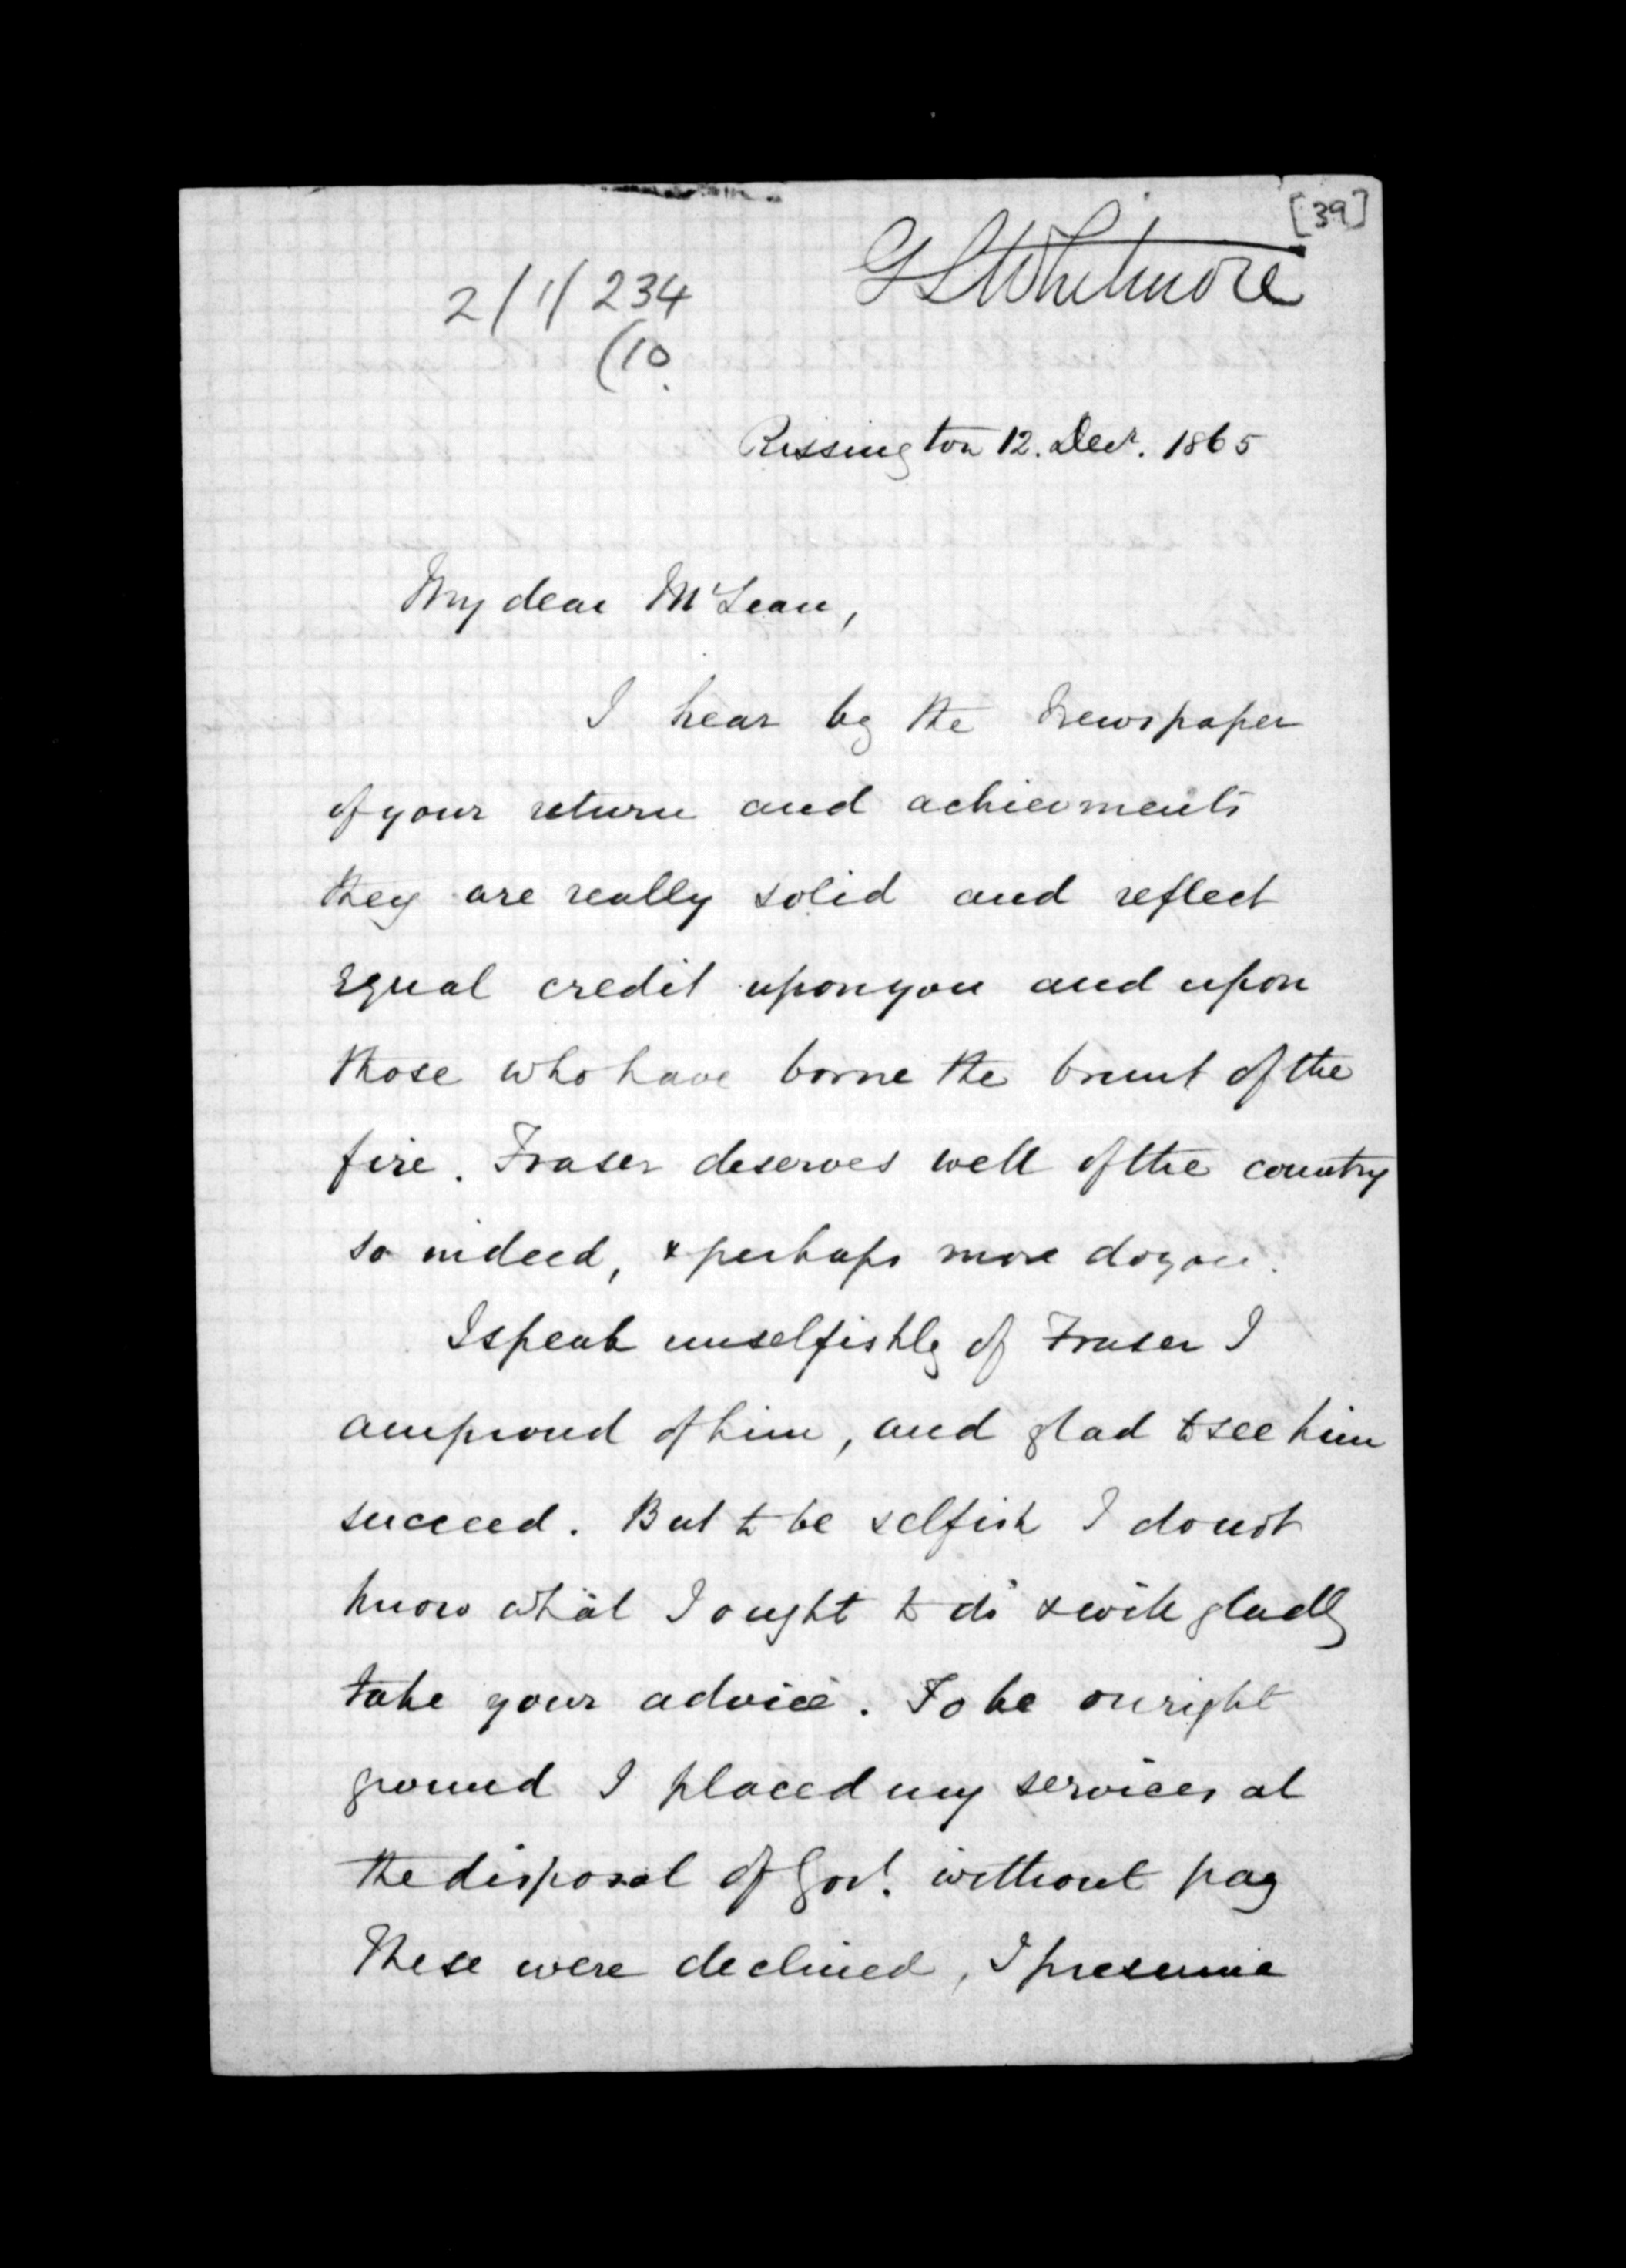 [39]
G S Whitmore
2/1/234
(10.
Rissington 12. Decr. 1865
My dear McLean,
I hear by the Newspaper
of your return and achievments
they are really solid and reflect
equal credit upon you and upon
those who have borne the brunt of the
fire. Fraser deserves well of the country
so indeed, & perhaps more do you.
I speak unselfishly of Fraser I
am proud of him, and glad to see him
succeed. But to be selfish I do not
know what I ought to do & will gladly
take your advice. To be on right
ground I placed my services at
the disposal of Govt. without pay
These were declined, I presume